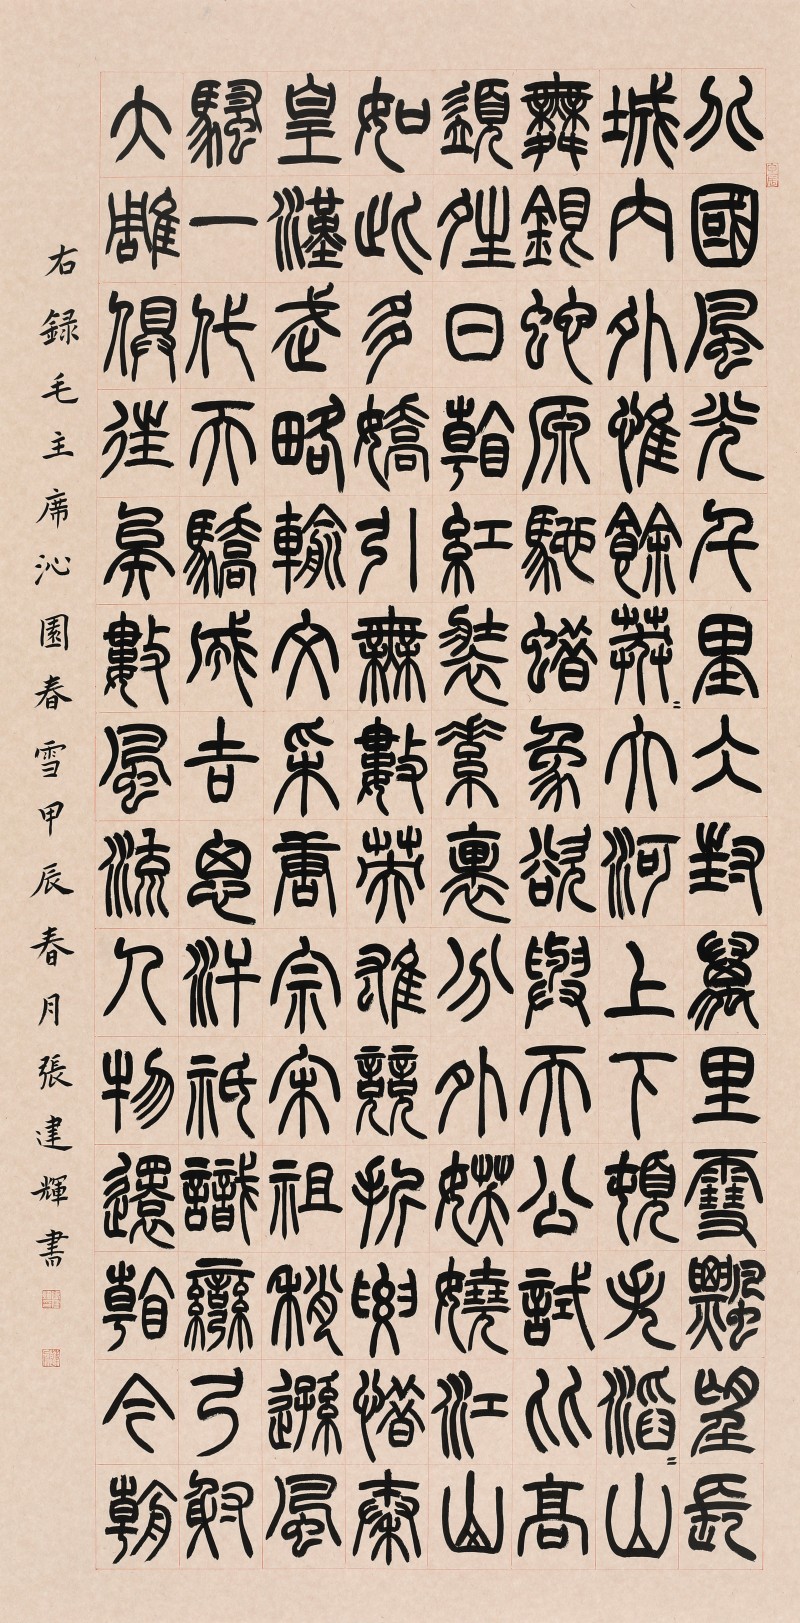 北國風光千里仌封萬里雪飄望長
城內外惟餘莽〻大河上下頓失滔〻山
舞銀蛇原馳蠟象欲與天公試比高
須夝日看紅裝素裹分外妖嬈江山
如此多嬌引無數英雄競折腰惜秦
皇漢武略輸文采唐宗宋祖稍遜風
騷一代天驕成吉思汗祇識彎弓射
大雕俱往矣數風流人物還看今朝
右録毛主席沁園春雪甲辰春月張建輝書